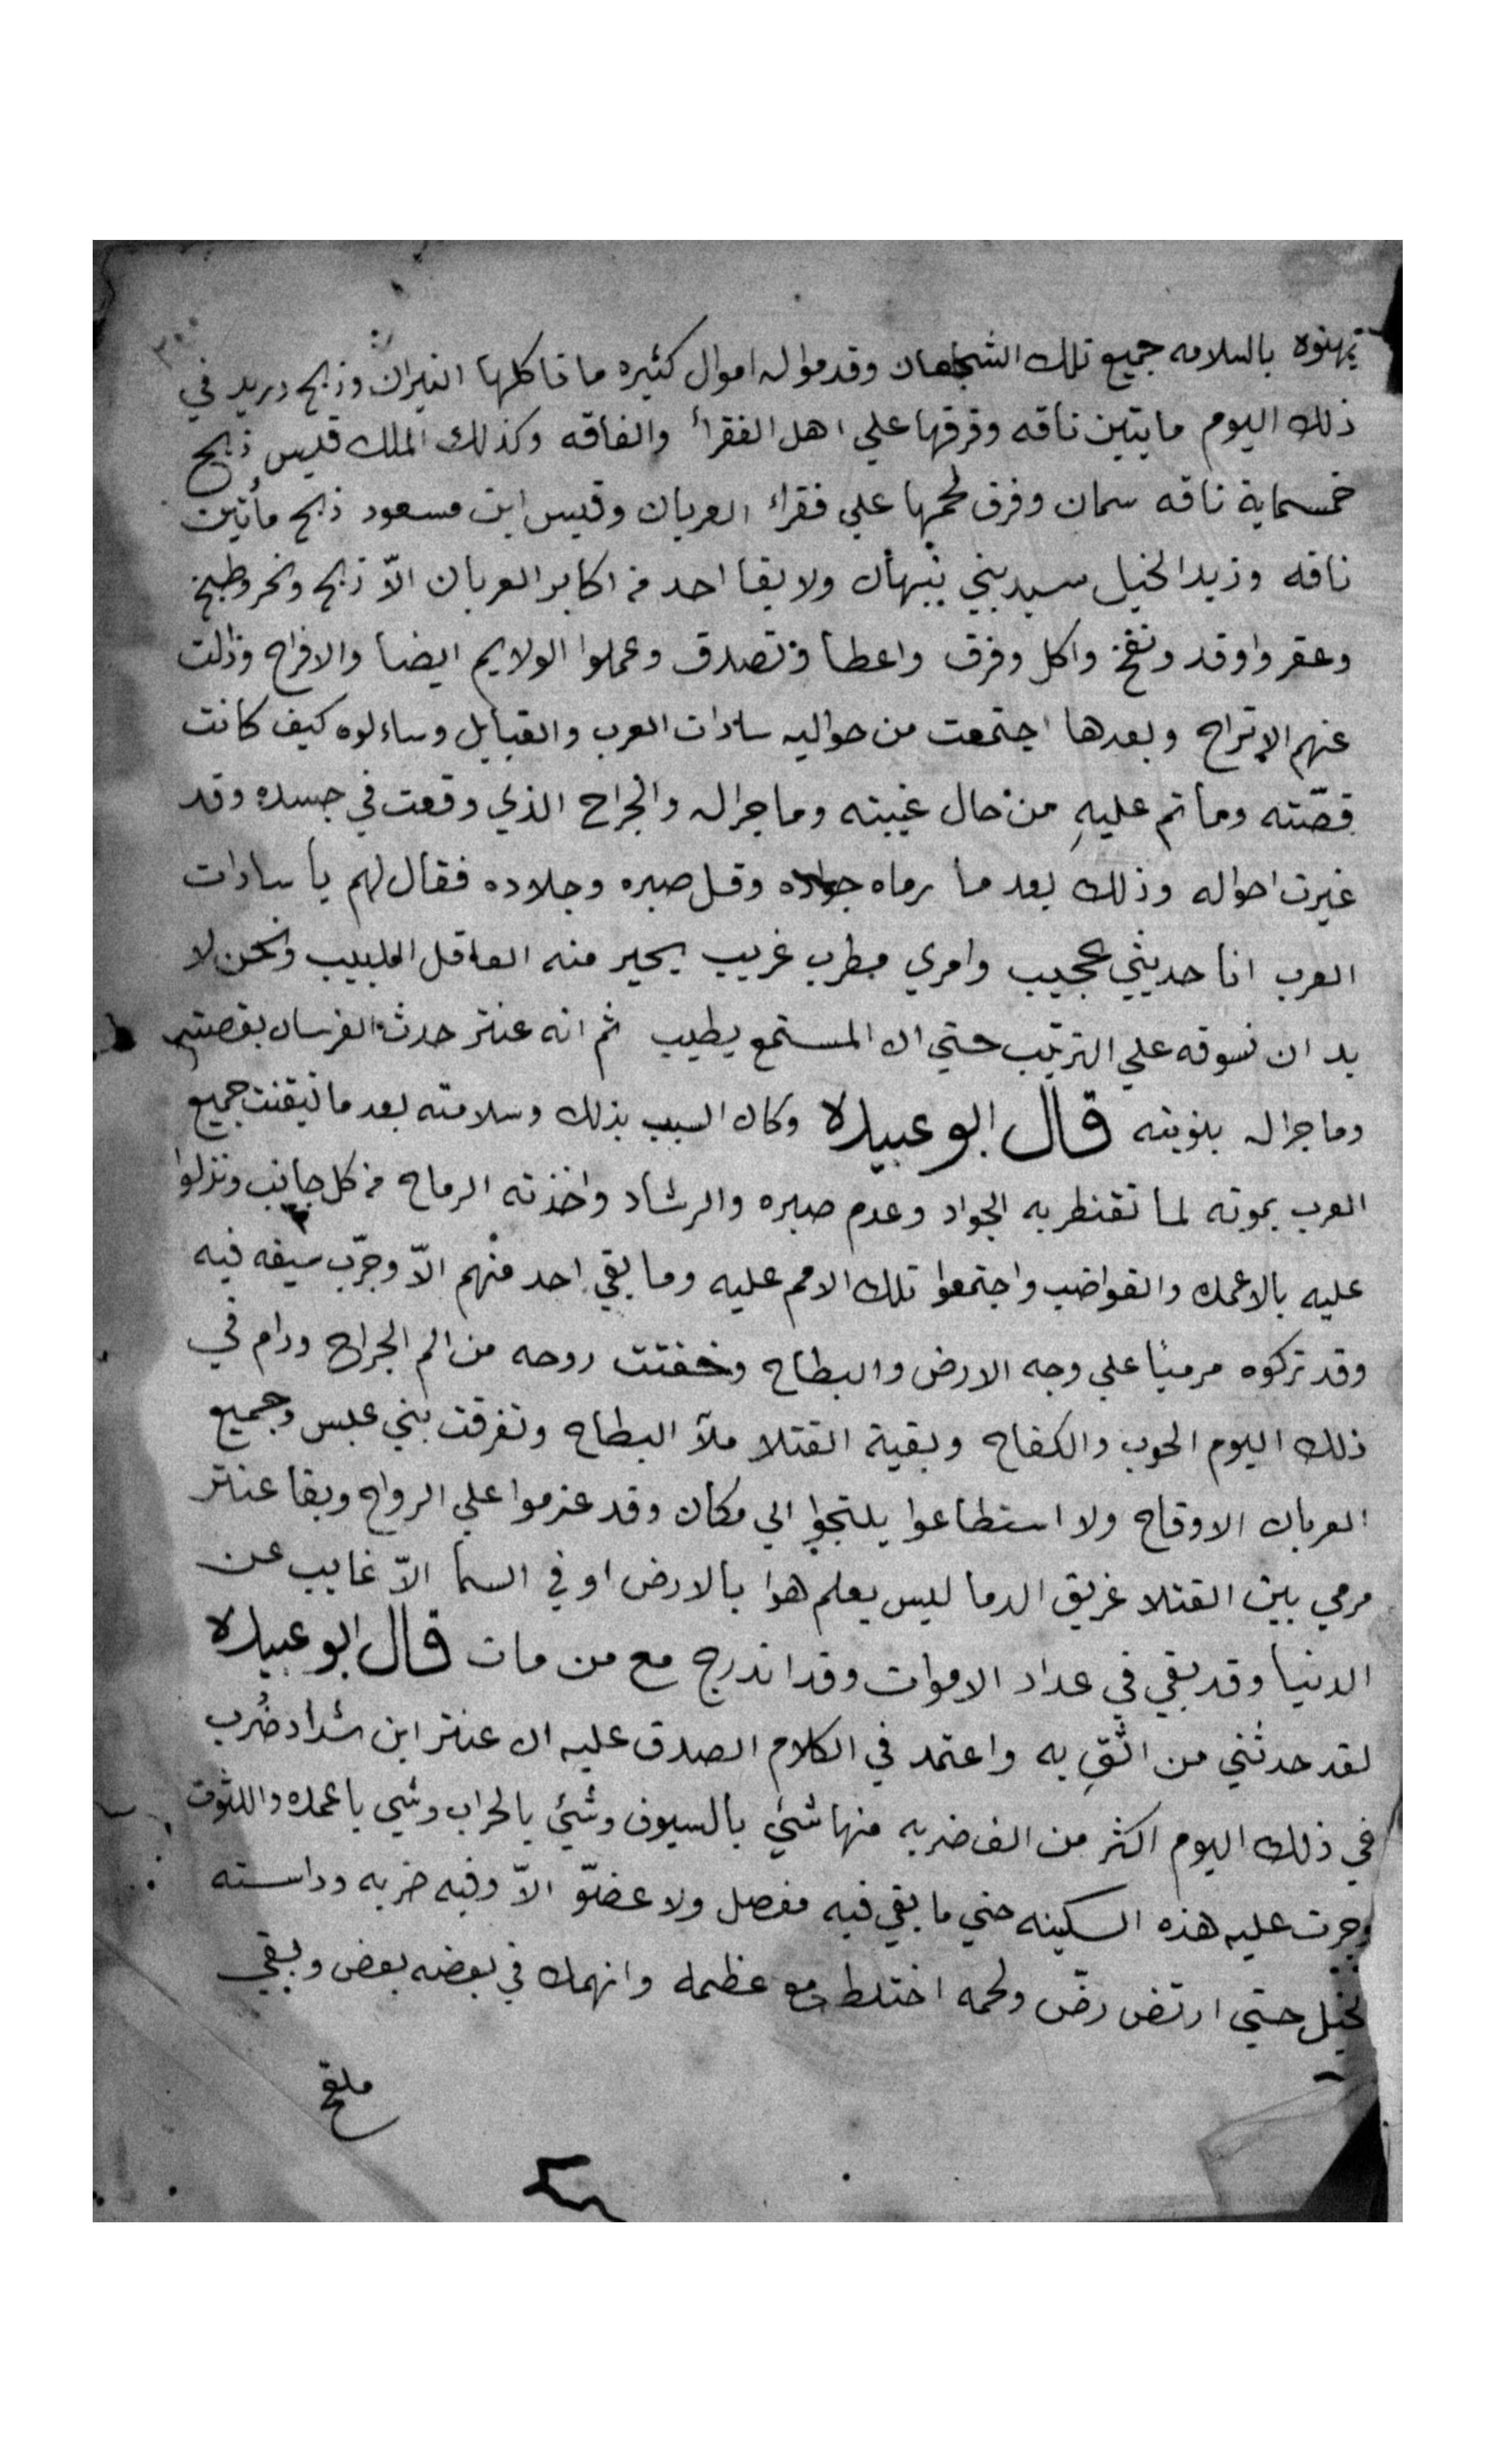 يهنوه بالسلامه جميع تلك الشجعان وقدموا له اموال كثيره ما تاكلها النيران وذبح دريد في
ذلك اليوم مايتين ناقه وفرقها علي اهل الفقرأ والفاقه وكذلك الملك قيس ذبح
خمسماية ناقه سمان وفرق لحمها علي فقراء العربان وقيس ابن مسعود ذبح مأتين
ناقه وزيد الخيل سيد بني نبهان ولا بقا احد من اكابر العربان الّا ذبح ونحر وطبخ
وعقر واوقد ونفخ واكل وفرق واعطا وتصدق وعملوا الولايم ايضا والافراح وزالت
عنهم الاتراح وبعدها اجتمعت من حواليه سادات العرب والقبايل وساءلوه كيف كانت
قصّته وما تم عليهِ من حال غيبته وما جرا له والجراح الذي وقعت في جسده وقد
غيرت احواله وذلك بعد ما رماه جواده وقل صبره وجلاده فقال لهم يا سادات
العرب انا حديثي عجيب وامري مطرب غريب يحير منه العاقل اللبيب ونحن لا
بد ان نسوقه علي الترتيب حتي ان المستمع يطيب ثم انه عنتر حدث الفرسان بقصته
وما جرا له بنوبته قال ابو عبيده وكان السبب بذلك وسلامته بعد ما تيقنت جميع
العرب بموته لما تقنطر به الجواد وعدم صبره والرشاد واخذته الرماح من كل جانب ونزلوا
عليه بالاعمده والقواضب واجتمعوا تلك الامم عليه وما بقي احد منهم الّا وجرّب سيفه فيه
وقد تركوه مرميًا علي وجه الارض والبطاح وخفتت روحه من الم الجراح ودام في
ذلك اليوم الحرب والكفاح وبقية القتلا ملآ البطاح وتفرقت بني عبس وجميع
العربان الاوقاح ولا استطاعوا يلتجوا الي مكان وقد عزموا علي الرواح وبقا عنتر
مرمي بين القتلا غريق الدما ليس يعلم هوا بالارض او في السما الّا غايب عن
الدنيا وقد بقي في عداد الاموات وقد اندرج مع من مات قال ابو عبيده
لقد حدثني من اثقِ به واعتمد في الكلام الصدق عليه ان عنتر ابن شداد ضُرب
في ذلك اليوم اكثر من الف ضربه منها شئ بالسيوف وشئ بالحراب وشي باعمده واللتوت
وجرت عليه هذه السكينه حتي ما بقي فيه مفصل ولا عضوّ الّا وفيه ضربه وداسته
لخيل حتي ارتض رضّ ولحمه اختلط مع عظمه وانهمك في بعضه بعض وبقي
ملقح